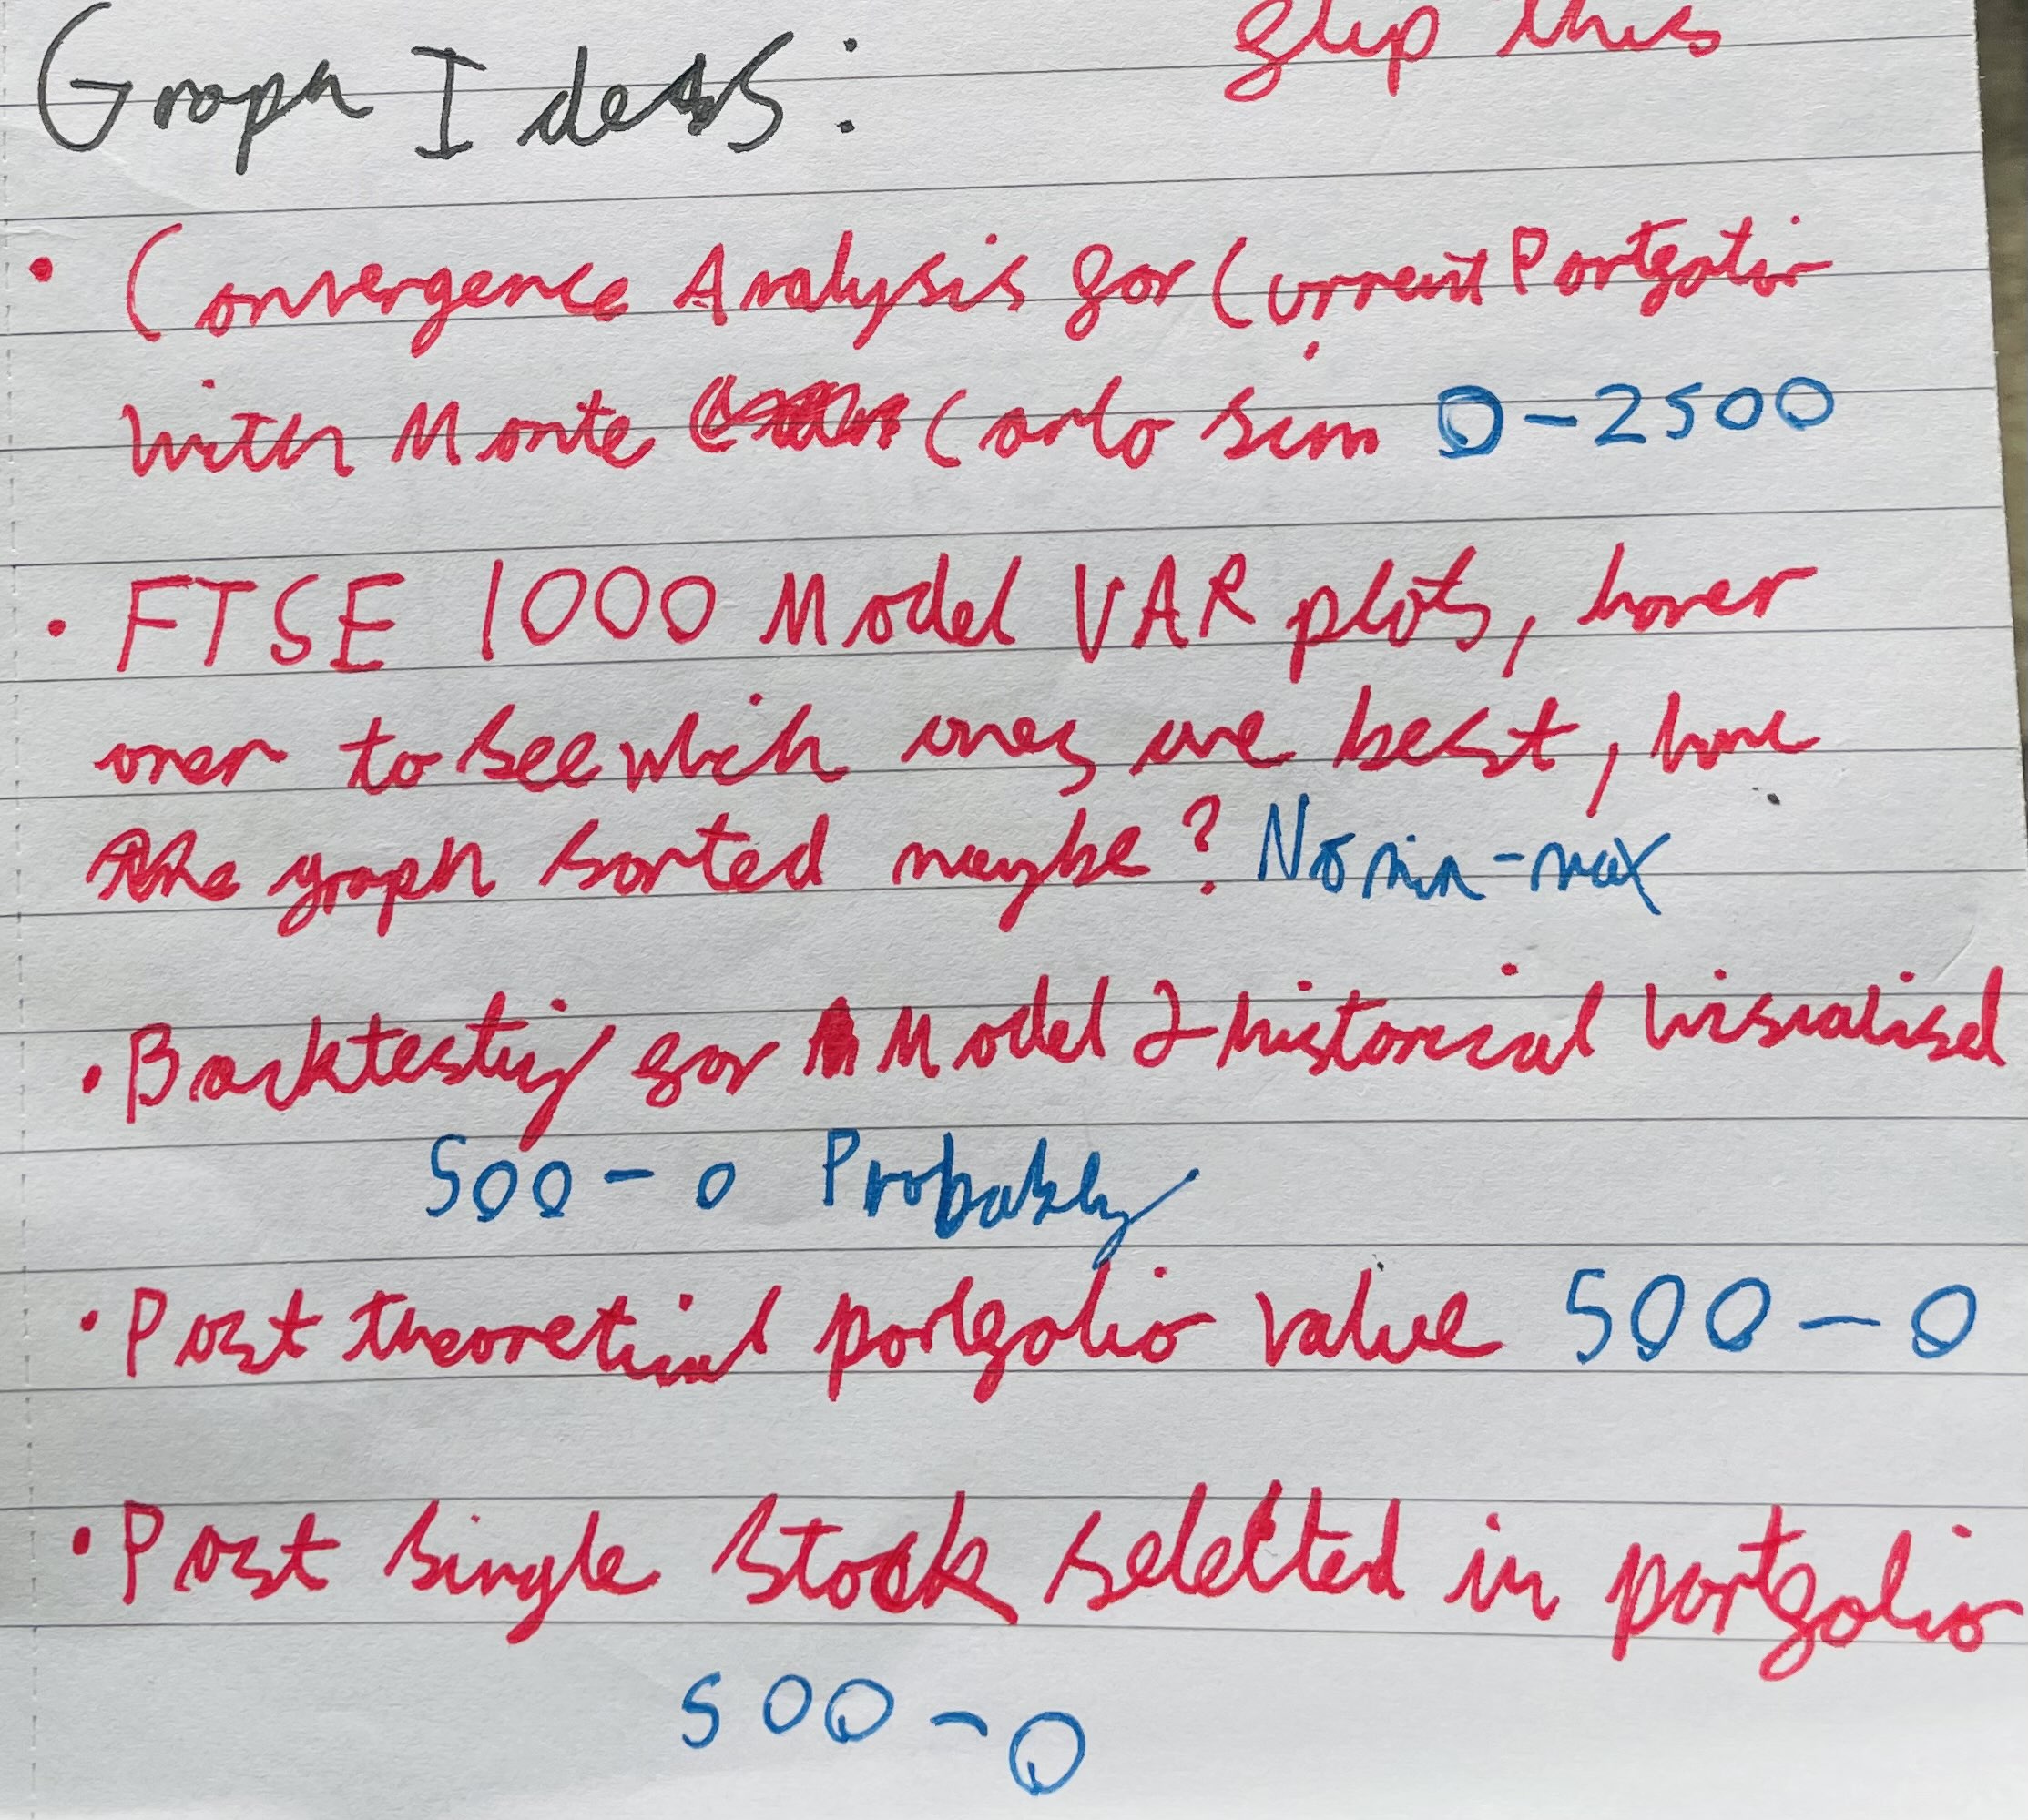 flip this
Graph Ideas:
• Convergence Analysis for Current Portfolio
with Monte Carlo sim 0-2500
• FTSE 1000 Model VAR plots, hover
over to see which ones are best, have
the graph sorted maybe? No min-max
• Backtesting for Model & historical visualised
500-0 Probably
• Past theoretical portfolio value 500-0
• Past single stock selected in portfolio
500-0